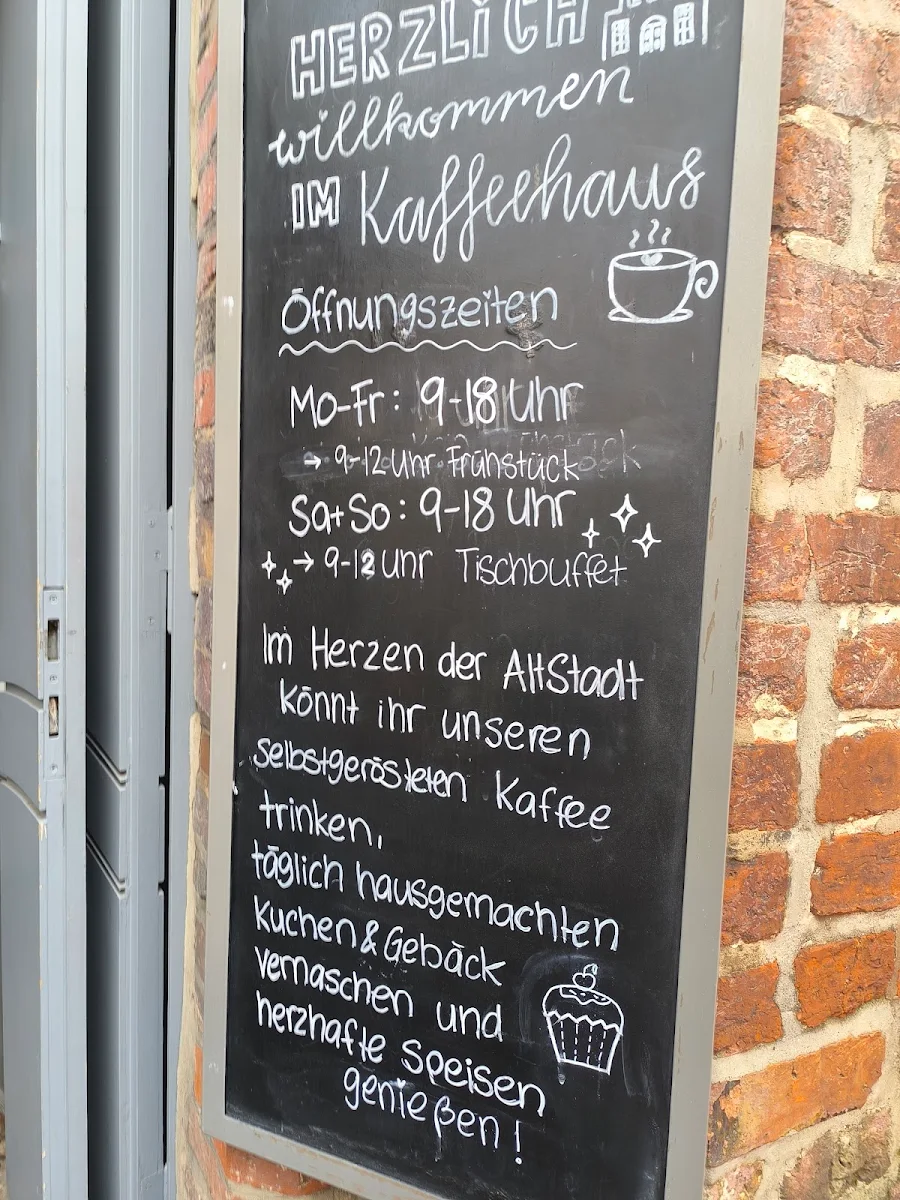 HERZLICH
willkommen
IM Kaffeehaus
Öffnungszeiten
Mo-Fr: 9-18 Uhr
→ 9-12 Uhr Frühstück
Sa+So: 9-18 Uhr
→ 9-12 Uhr Tischbuffet
Im Herzen der Altstadt
könnt ihr unseren
selbstgerösteten Kaffee
trinken,
täglich hausgemachten
Kuchen & Gebäck
vernaschen und
herzhafte Speisen
genießen!